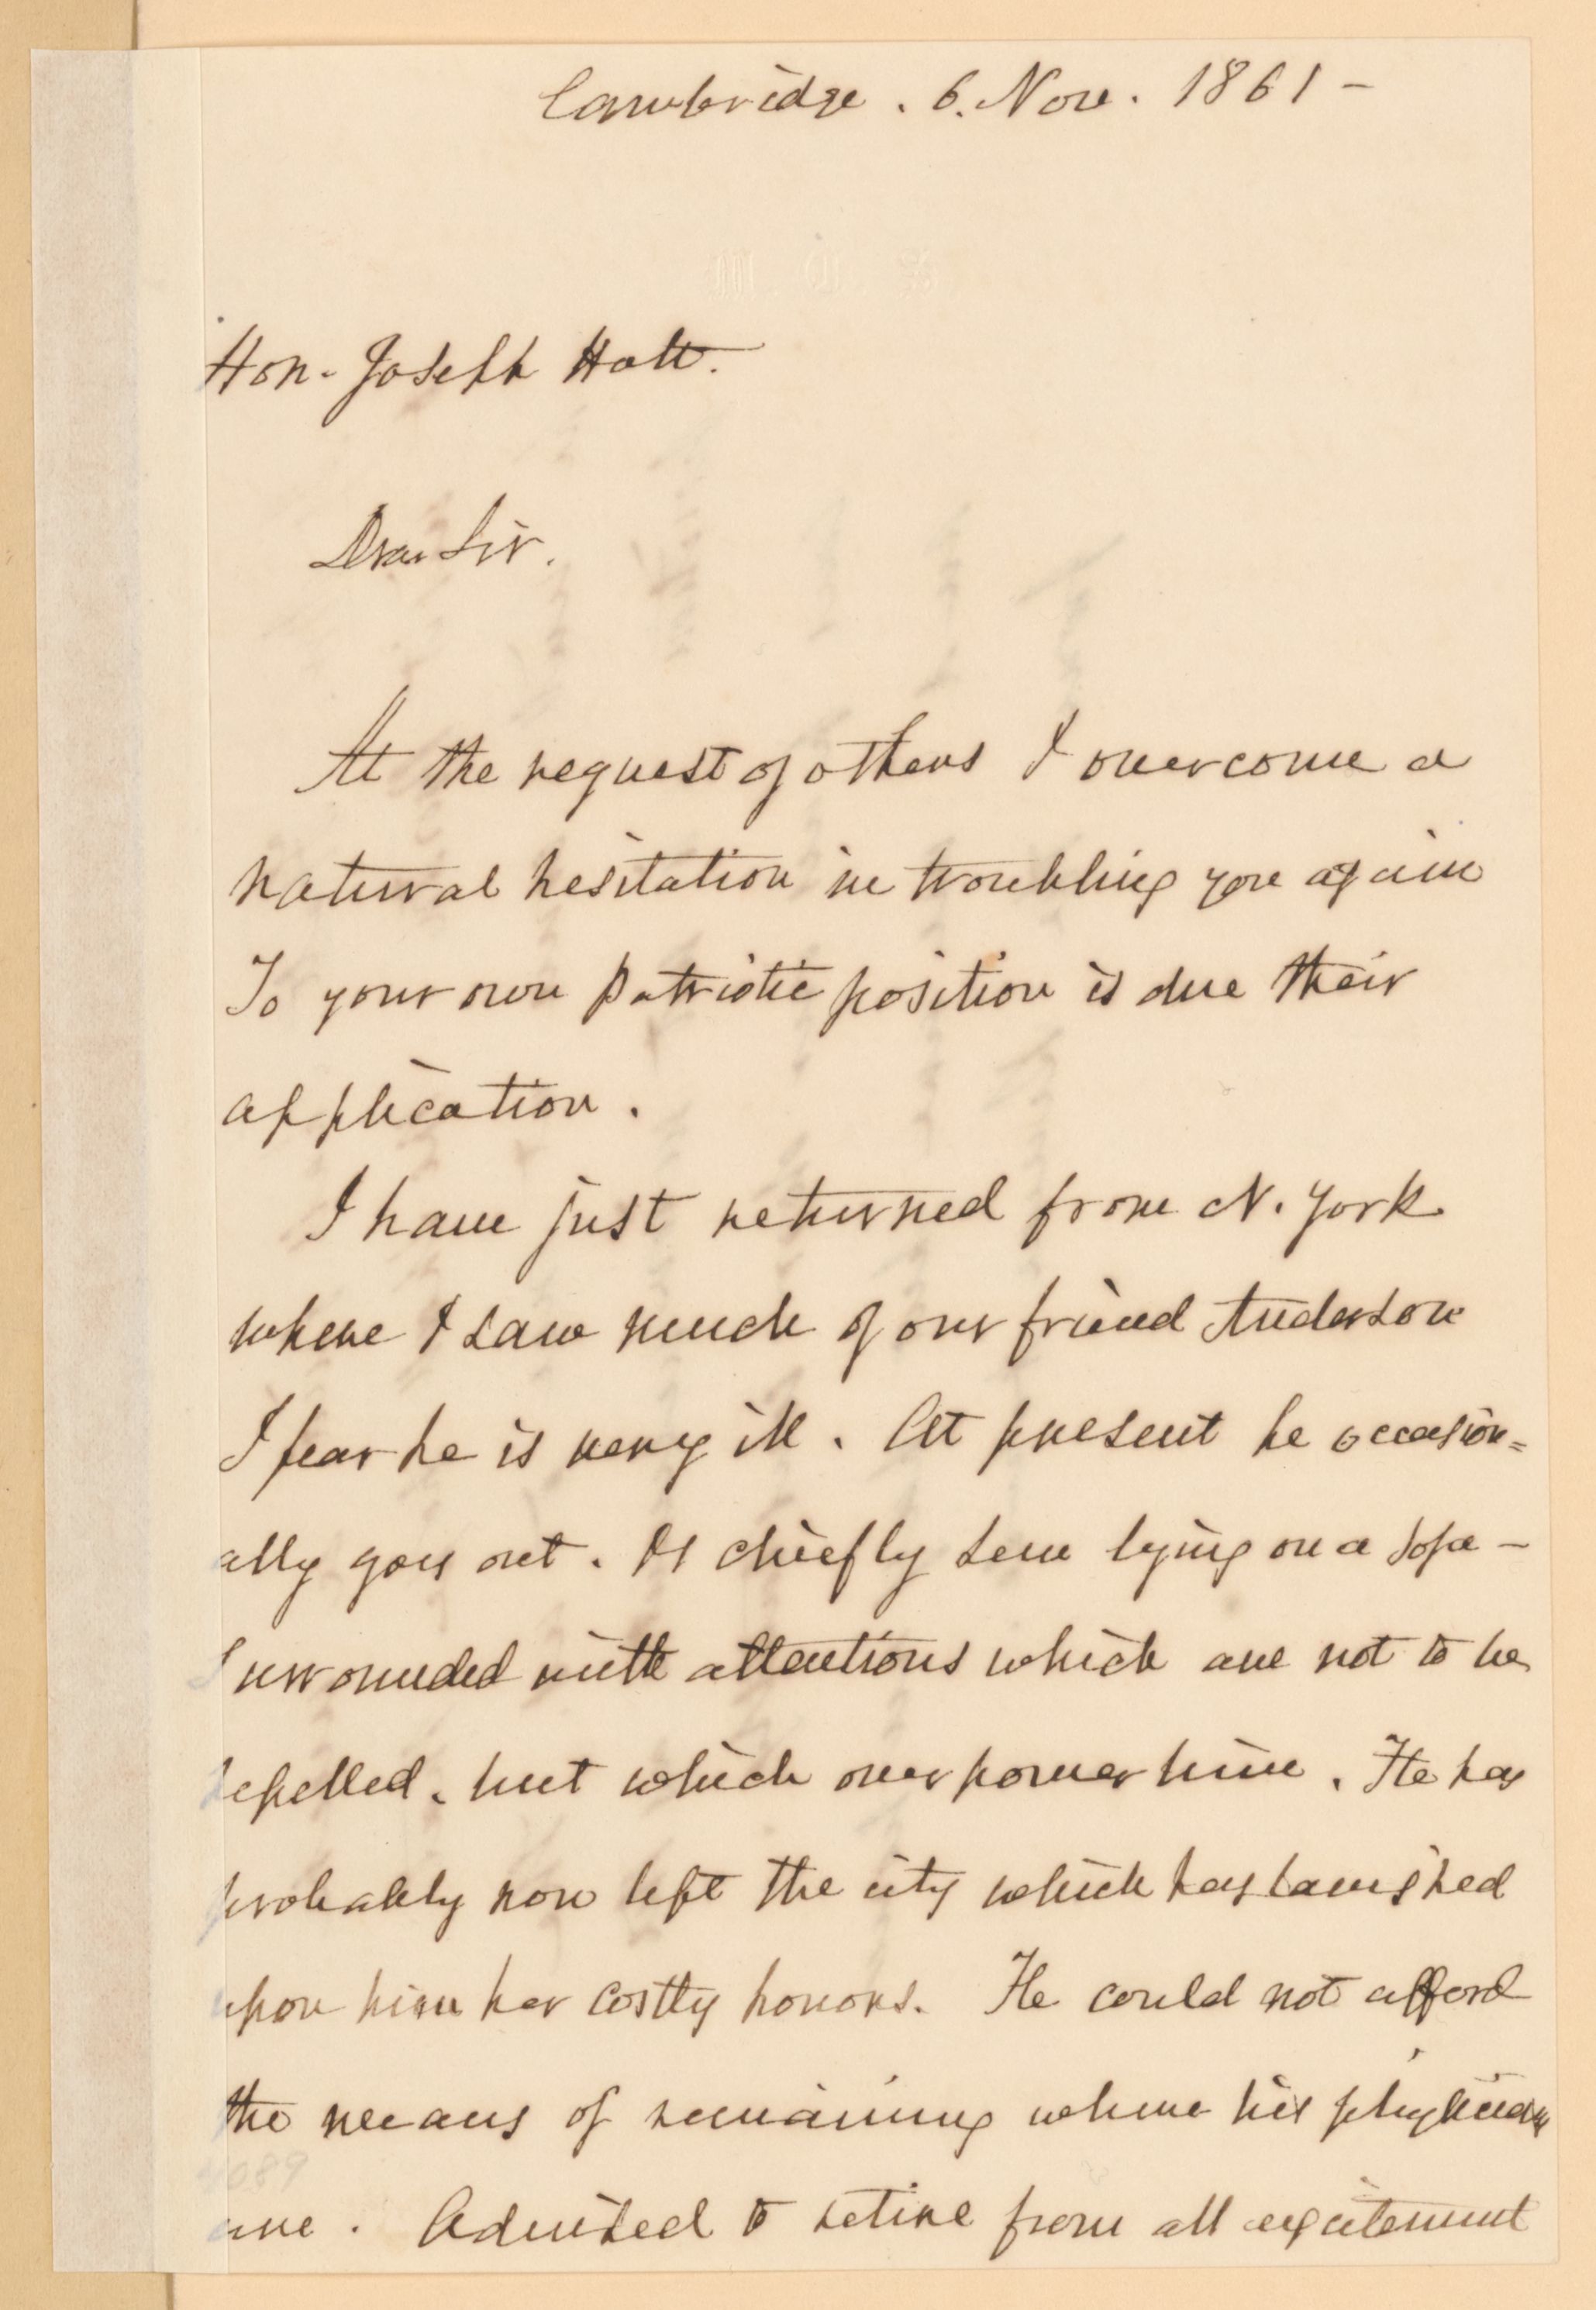 Cambridge. 6. Nov. 1861 -
Hon. Joseph Holt.
Dear Sir.
At the request of others I overcome a
natural hesitation in troubling you again
To your own patriotic position is due their
application.
I have just returned from N. York
where I saw much of our friend Anderson
I fear he is very ill. At present he occasion=
ally goes out. Is chiefly seen lying on a sofa -
Surrounded with attentions which are not to be
repelled, but which overpower him. He has
probably now left the city which has lavished
upon him her costly honors. He could not afford
the means of remaining where his physicians
are. Advised to retire from all excitement